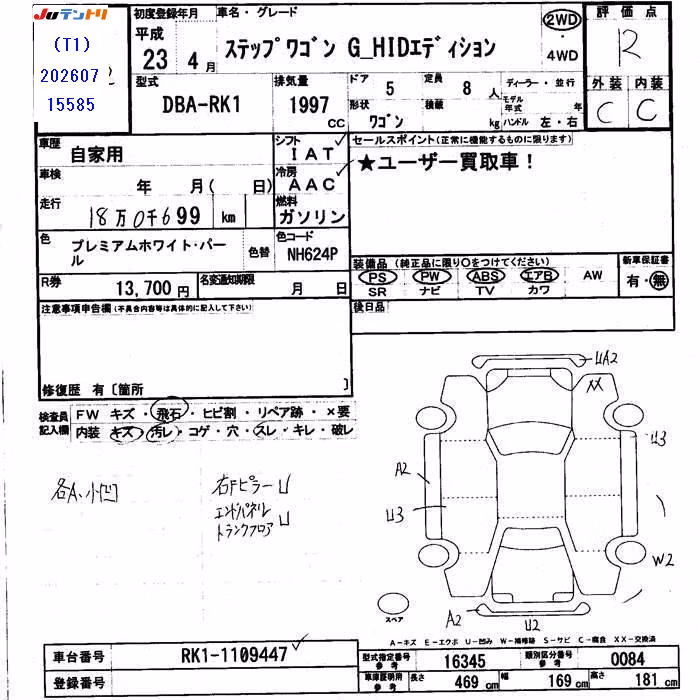 Juテントリ
(T1)
202607
15585
初度登録年月
平成
23 4 月
車名・グレード
ステップワゴン G_HIDエディション
2WD
・
4WD
評価点
R
外装 内装
C C
型式
DBA-RK1
排気量
1997
CC
ドア 5
定員 8 人
形状
ワゴン
積載
kg
ディーラー・並行
モデル
年式
年
ハンドル 左・右
車歴
自家用
シフト
IAT
車検
年 月( 日)
冷房
AAC
走行
18万0千699 km
燃料
ガソリン
色
プレミアムホワイト・パール
色替
色コード
NH624P
R券
13,700 円
名変通知期限
月 日
セールスポイント(正常に機能するものに限ります)
★ユーザー買取車!
装備品 (純正品に限り○をつけてください)
PS PW ABS エアB AW
SR ナビ TV カワ
新車保証書
有・無
後日品
注意事項申告欄(不具合内容等は具体的に記入して下さい)
修復歴 有〔箇所 〕
検査員
記入欄
FW キズ・飛石・ヒビ割・リペア跡・×要
内装 キズ・汚レ・コゲ・穴・スレ・キレ・破レ
各A、小凹
右Fピラー U
エンドパネル
トランクフロア U
UA2
XX
U3
A2
U3
W2
A2
U2
スペア
A-キズ E-エクボ U-凹み W-補修跡 S-サビ C-腐食 XX-交換済
車台番号
RK1-1109447
登録番号
型式指定番号
参考
16345
類別区分番号
参考
0084
車庫証明用
参考
長さ 469 cm
幅 169 cm
高さ 181 cm